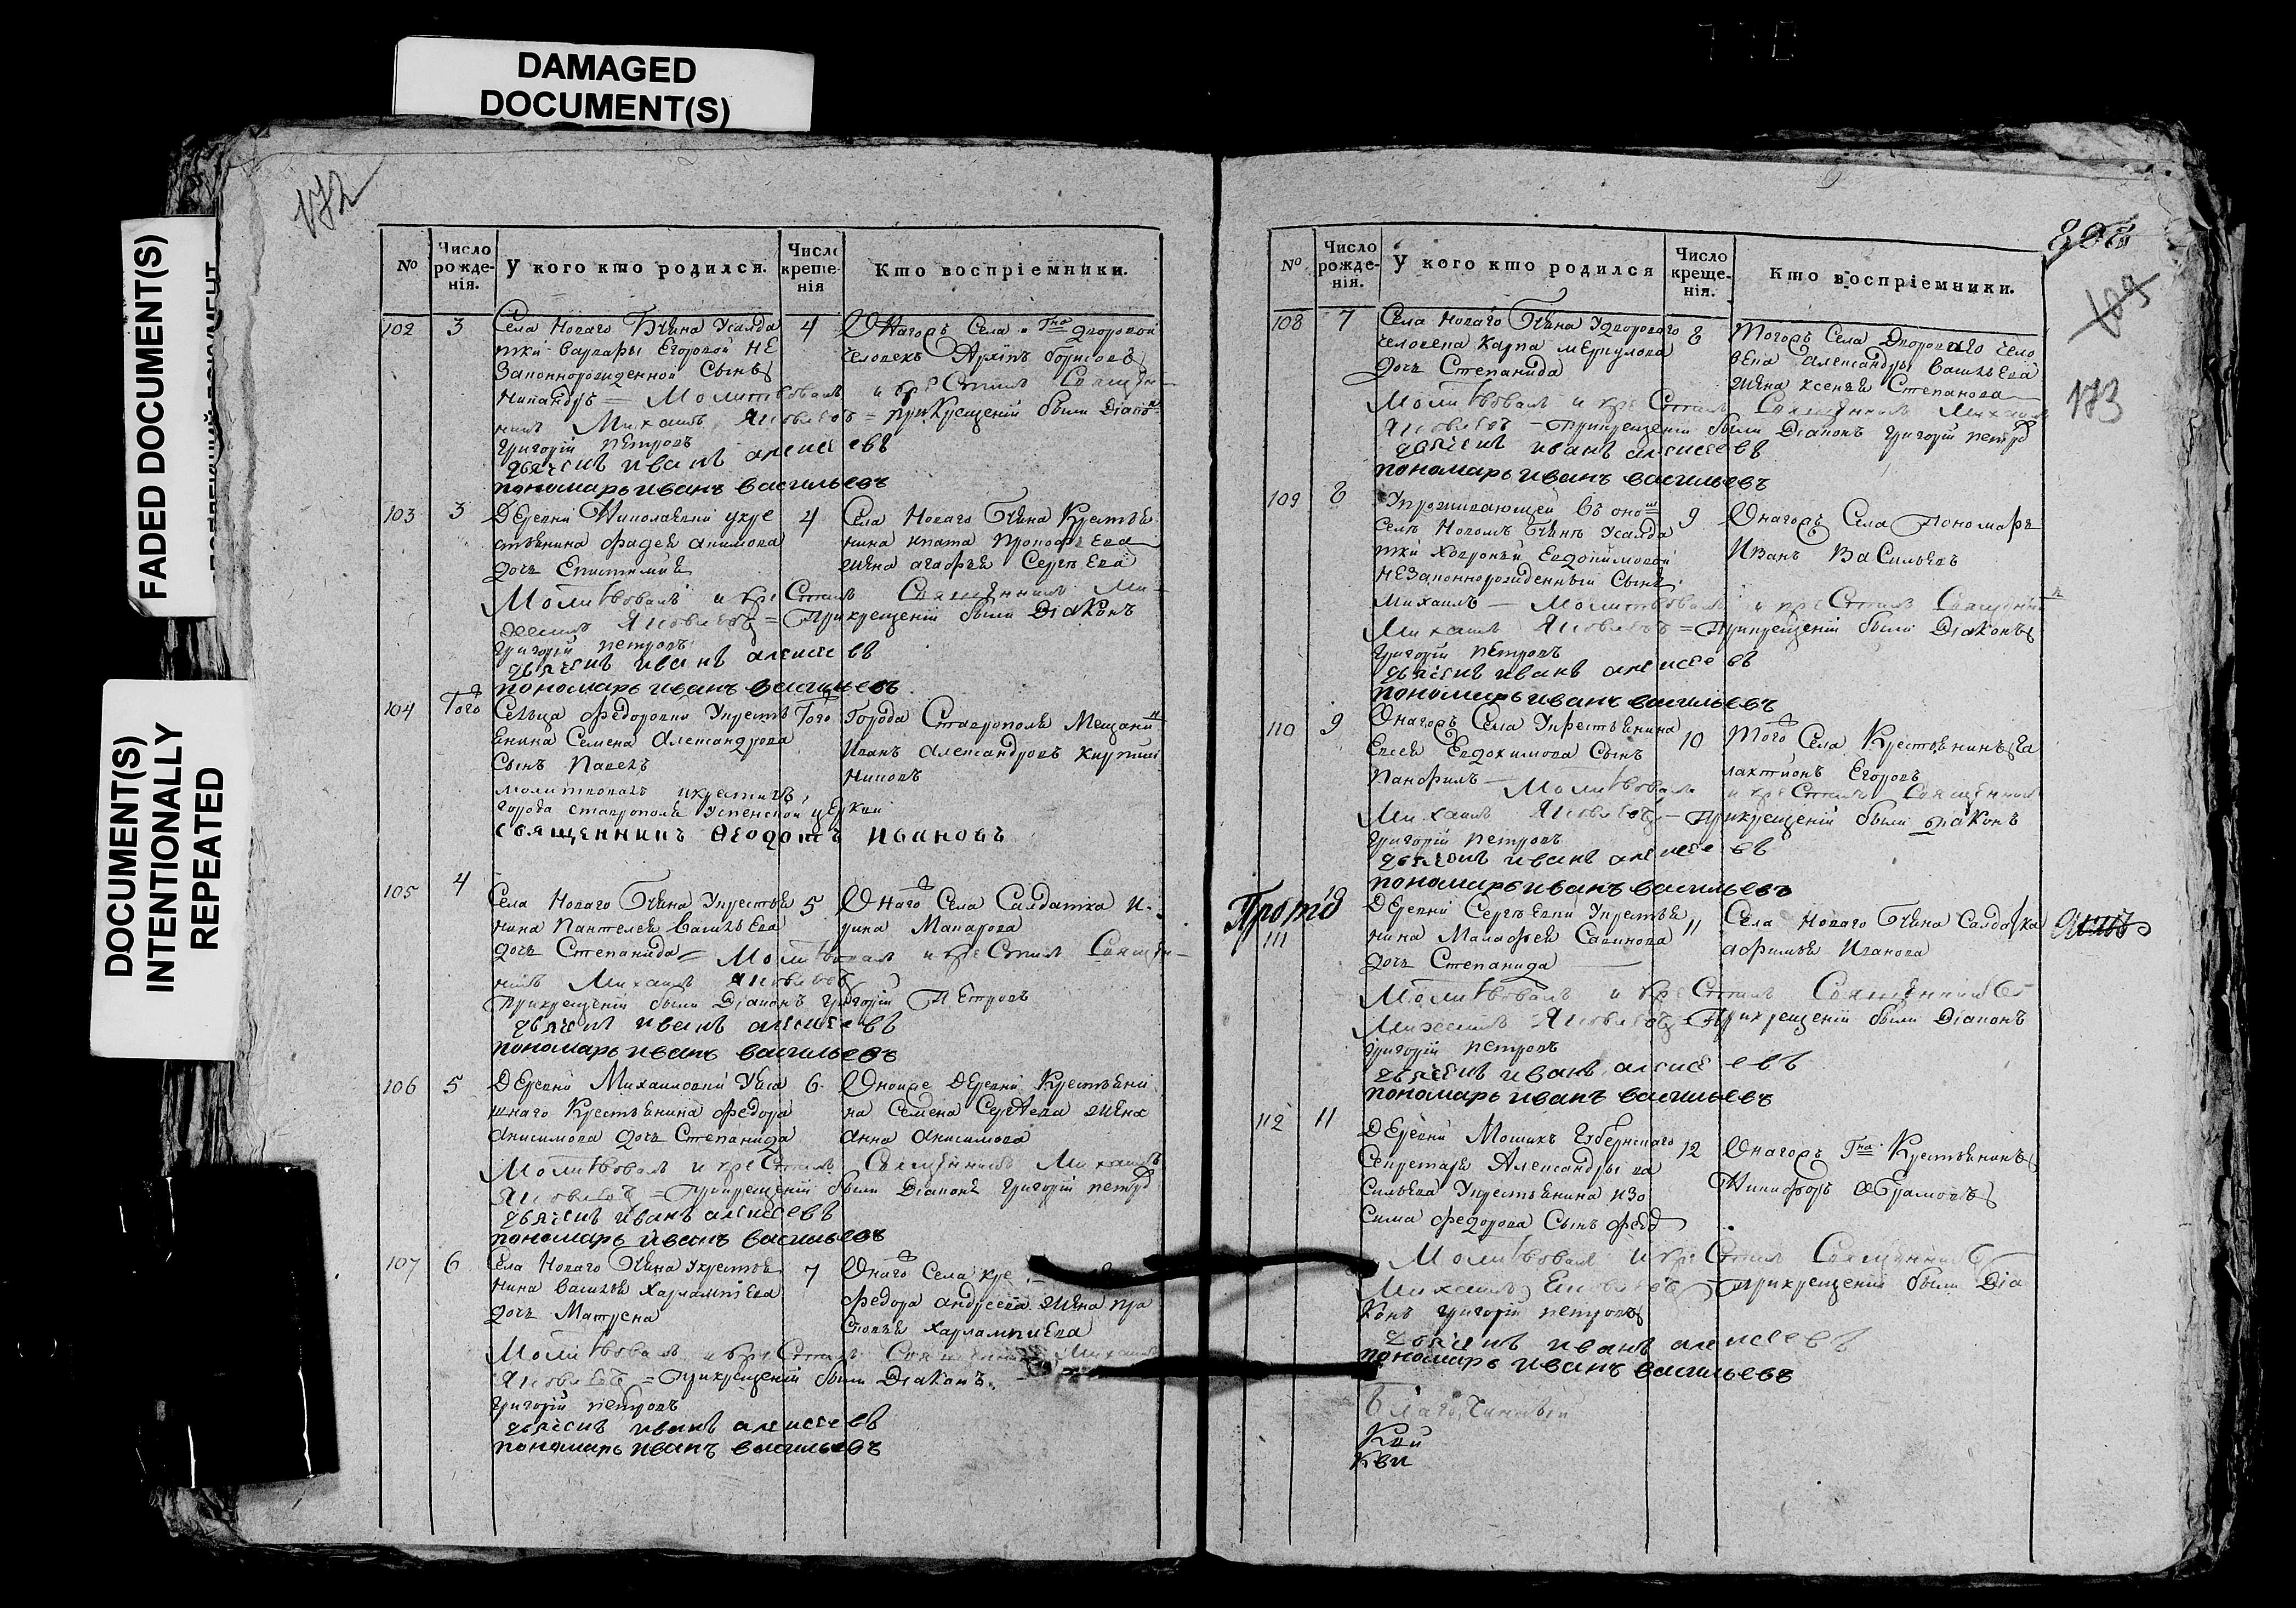 DAMAGED
DOCUMENT(S)
FADED DOCUMENT(S)
DOCUMENT(S)
INTENTIONALLY
REPEATED
172
№
Число рожденія.
У кого кто родился.
Число крещенія
Кто воспріемники.
102
3
Села Новаго Бҍчина Усалда
тки Варвары Егоровой НЕ
Законнорожденной Сынъ
Никандръ — Молитвовалъ и крестилъ Священ
никъ Михаилъ Яковлевъ = при крещеніи были Діако
Григорій Петровъ
дьячекъ иванъ алексеевъ
пономарь иванъ васильевъ
4
Онагожъ Села Гна дворовои
человекъ Архипъ борисовъ
103
3
ДЕревни Николаевки укре
стьянина фадея акимова
дочь Епистимия
Молитвовалъ и крестилъ Священникъ Ми
хаилъ Яковлевъ = При крещеніи были Діаконъ
Григорій петровъ
дьячекъ иванъ алексеевъ
пономарь иванъ васильевъ
4
Села Новаго Бҍчина Крестья
нина игната прокофьева
жена агафья Сергҍева
104
Того
Сельца федоровки Укресть
янина Семена Александрова
Сынъ Павелъ
молитвовалъ икрестилъ,
города ставрополя Успенской церкви
священникъ Ѳеодотъ Ивановъ
Того
Города Ставрополя Мещани
Иванъ Александровъ Кирпи
никовъ
105
4
Села Новаго Бҍчина Укрестья
нина Пантелея Васильева
дочь Степанида — Молитвовалъ и крестилъ Священ
никъ Михаилъ Яковлевъ
При крещеніи были Діаконъ Григорій Петровъ
дьячекъ иванъ алексеевъ
пономарь иванъ васильевъ
5
Онаго Села Салдатка И
рина Макарова
106
5
ДЕревни Михаиловки
Крестьянина федора
Анисимова дочь Степанида
Молитвовалъ и крестилъ Священникъ Михаилъ
Яковлевъ = При крещеніи были Діаконъ Григорій петро
дьячекъ иванъ алексеевъ
пономарь иванъ васильевъ
6
Оноиже ДЕревни Крестьяни
на Семена Сергҍева жена
Анна Анисимова
107
6
Села Новаго Бҍчина Укрестья
нина Василья Харлампіева
дочь Матрена
Молитвовалъ и крестилъ Священникъ Михаилъ
Яковлевъ = При крещеніи были Діаконъ
Григорій петровъ
дьячекъ иванъ алексеевъ
пономарь иванъ васильевъ
7
Онаго Села кре
федора андреева жена пра
сковья харлампиева
173
№
Число рожденія.
У кого кто родился
Число крещенія.
Кто воспріемники.
108
7
Села Новаго Бҍчина Удвороваго
человека Карпа меркулова
дочь Степанида
Молитвовалъ и крестилъ Священникъ Михаилъ
Яковлевъ — При крещеніи были Діаконъ Григорій петро
дьячекъ иванъ алексеевъ
пономарь иванъ васильевъ
8
Тогожъ Села Двороваго чело
века Александры васильева
жена ксенья Степанова
109
8
Упроживающей въ оно
Селе Новомъ Бҍчине Усалда
тки Хавроньи Евдокимовой
НЕЗаконнорожденныи Сынъ
Михаилъ — Молитвовалъ и крестилъ Священни
Михаилъ Яковлевъ = При крещеніи были Діаконъ
Григорій петровъ
дьячекъ иванъ алексеевъ
пономарь иванъ васильевъ
9
Онагожъ Села Пономарь
Иванъ ВаСильевъ
110
9
Онагожъ Села Укрестьянина
Евсея Евдокимова Сынъ
Панфилъ — Молитвовалъ и крестилъ Священникъ
Михаилъ Яковлевъ — При крещеніи были Діаконъ
Григорій петровъ
дьячекъ иванъ алексеевъ
пономарь иванъ васильевъ
10
Того Села Крестьянинъ Га
лактионъ Егоровъ
111
ДЕревни Сергҍевки Укрестья
нина Малафея Савинова
дочь Степанида
Молитвовалъ и крестилъ Священникъ
Михаилъ Яковлевъ = При крещеніи были Діаконъ
Григорій петровъ
дьячекъ иванъ алексеевъ
пономарь иванъ васильевъ
11
Села Новаго Бҍчина Салдатка
афимья Иванова
112
11
ДЕревни Мошихъ Губернскаго
Секретаря Александры ва
сильева Укрестьянина изо
сима федорова Сынъ
Молитвовалъ и крестилъ Священникъ
Михаилъ Яковлевъ = При крещеніи были Діа
конъ григорій петровъ
дьячекъ иванъ алексеевъ
пономарь иванъ васильевъ
12
Онагожъ Гна Крестьянинъ
Никифоръ Абрамовъ
Благочинный